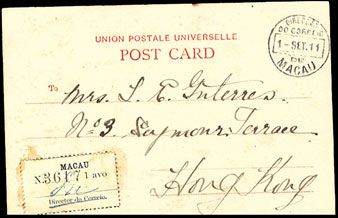 UNION POSTALE UNIVERSELLE
POST CARD
DO CORREIO
1-SET.11
DE
MACAU
To
Mrs. L. E. Guterres
No 3 Seymour Terrace
Hong Kong
MACAU
1 avo
Director do Correio.